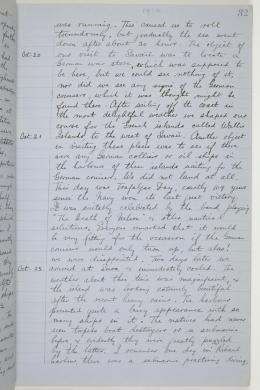 1914
32
was running. This caused us to roll
tremendously, but gradually the sea went
down after about an hour. The object of
Oct. 20 our visit to Savaii was to locate a
German war store, which was supposed to
be here, but we could see nothing of it,
nor did we see any signs of the German
cruisers, which it was thought might be
found there. After sailing off the coast in
the most delightful weather we shaped our
course for the French islands called Wallis
Oct. 21 Islands to the west of Savaii. Another object
in visiting these places was to see if there
were any German colliers or oil ships in
the harbours of these islands waiting on the
German cruisers. We did not land at all.
This day was Trafalgar Day, exactly 109 years
since the Navy won its last great victory.
It was suitably celebrated by the band playing
"The Death of Nelson" & other nautical
selections. Everyone remarked that it would
be very fitting for the occasion if the German
cruisers would only turn up, but alas!
we were disappointed. Two days later we
Oct. 23. arrived at Suva & immediately coaled. The
weather about this time was magnificent, &
the island was looking extremely beautiful
after the recent heavy rains. The harbour
presented quite a busy appearance with so
many ships in it. The natives had never
seen torpedo boat destroyers or a submarine
before, & evidently they were greatly puzzled
by the latter. I remember one day in
harbour there was a submarine practising diving,